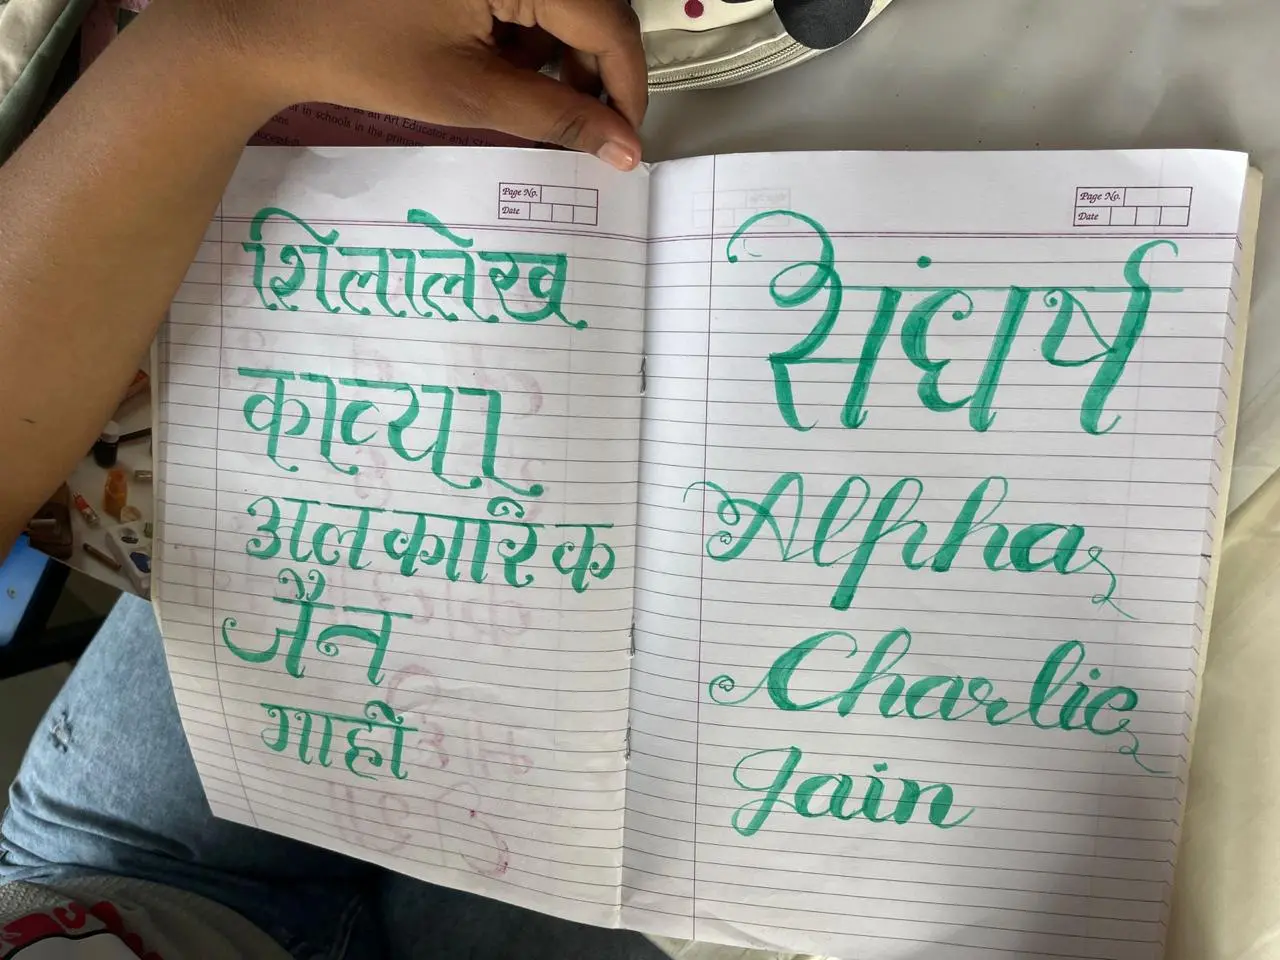 an Art Educator and
in schools in the
Page No.
Date
शिलालेख
काव्या
अलकारिक
जैन
गाही
Page No.
Date
संघर्ष
Alpha
Charlie
Jain